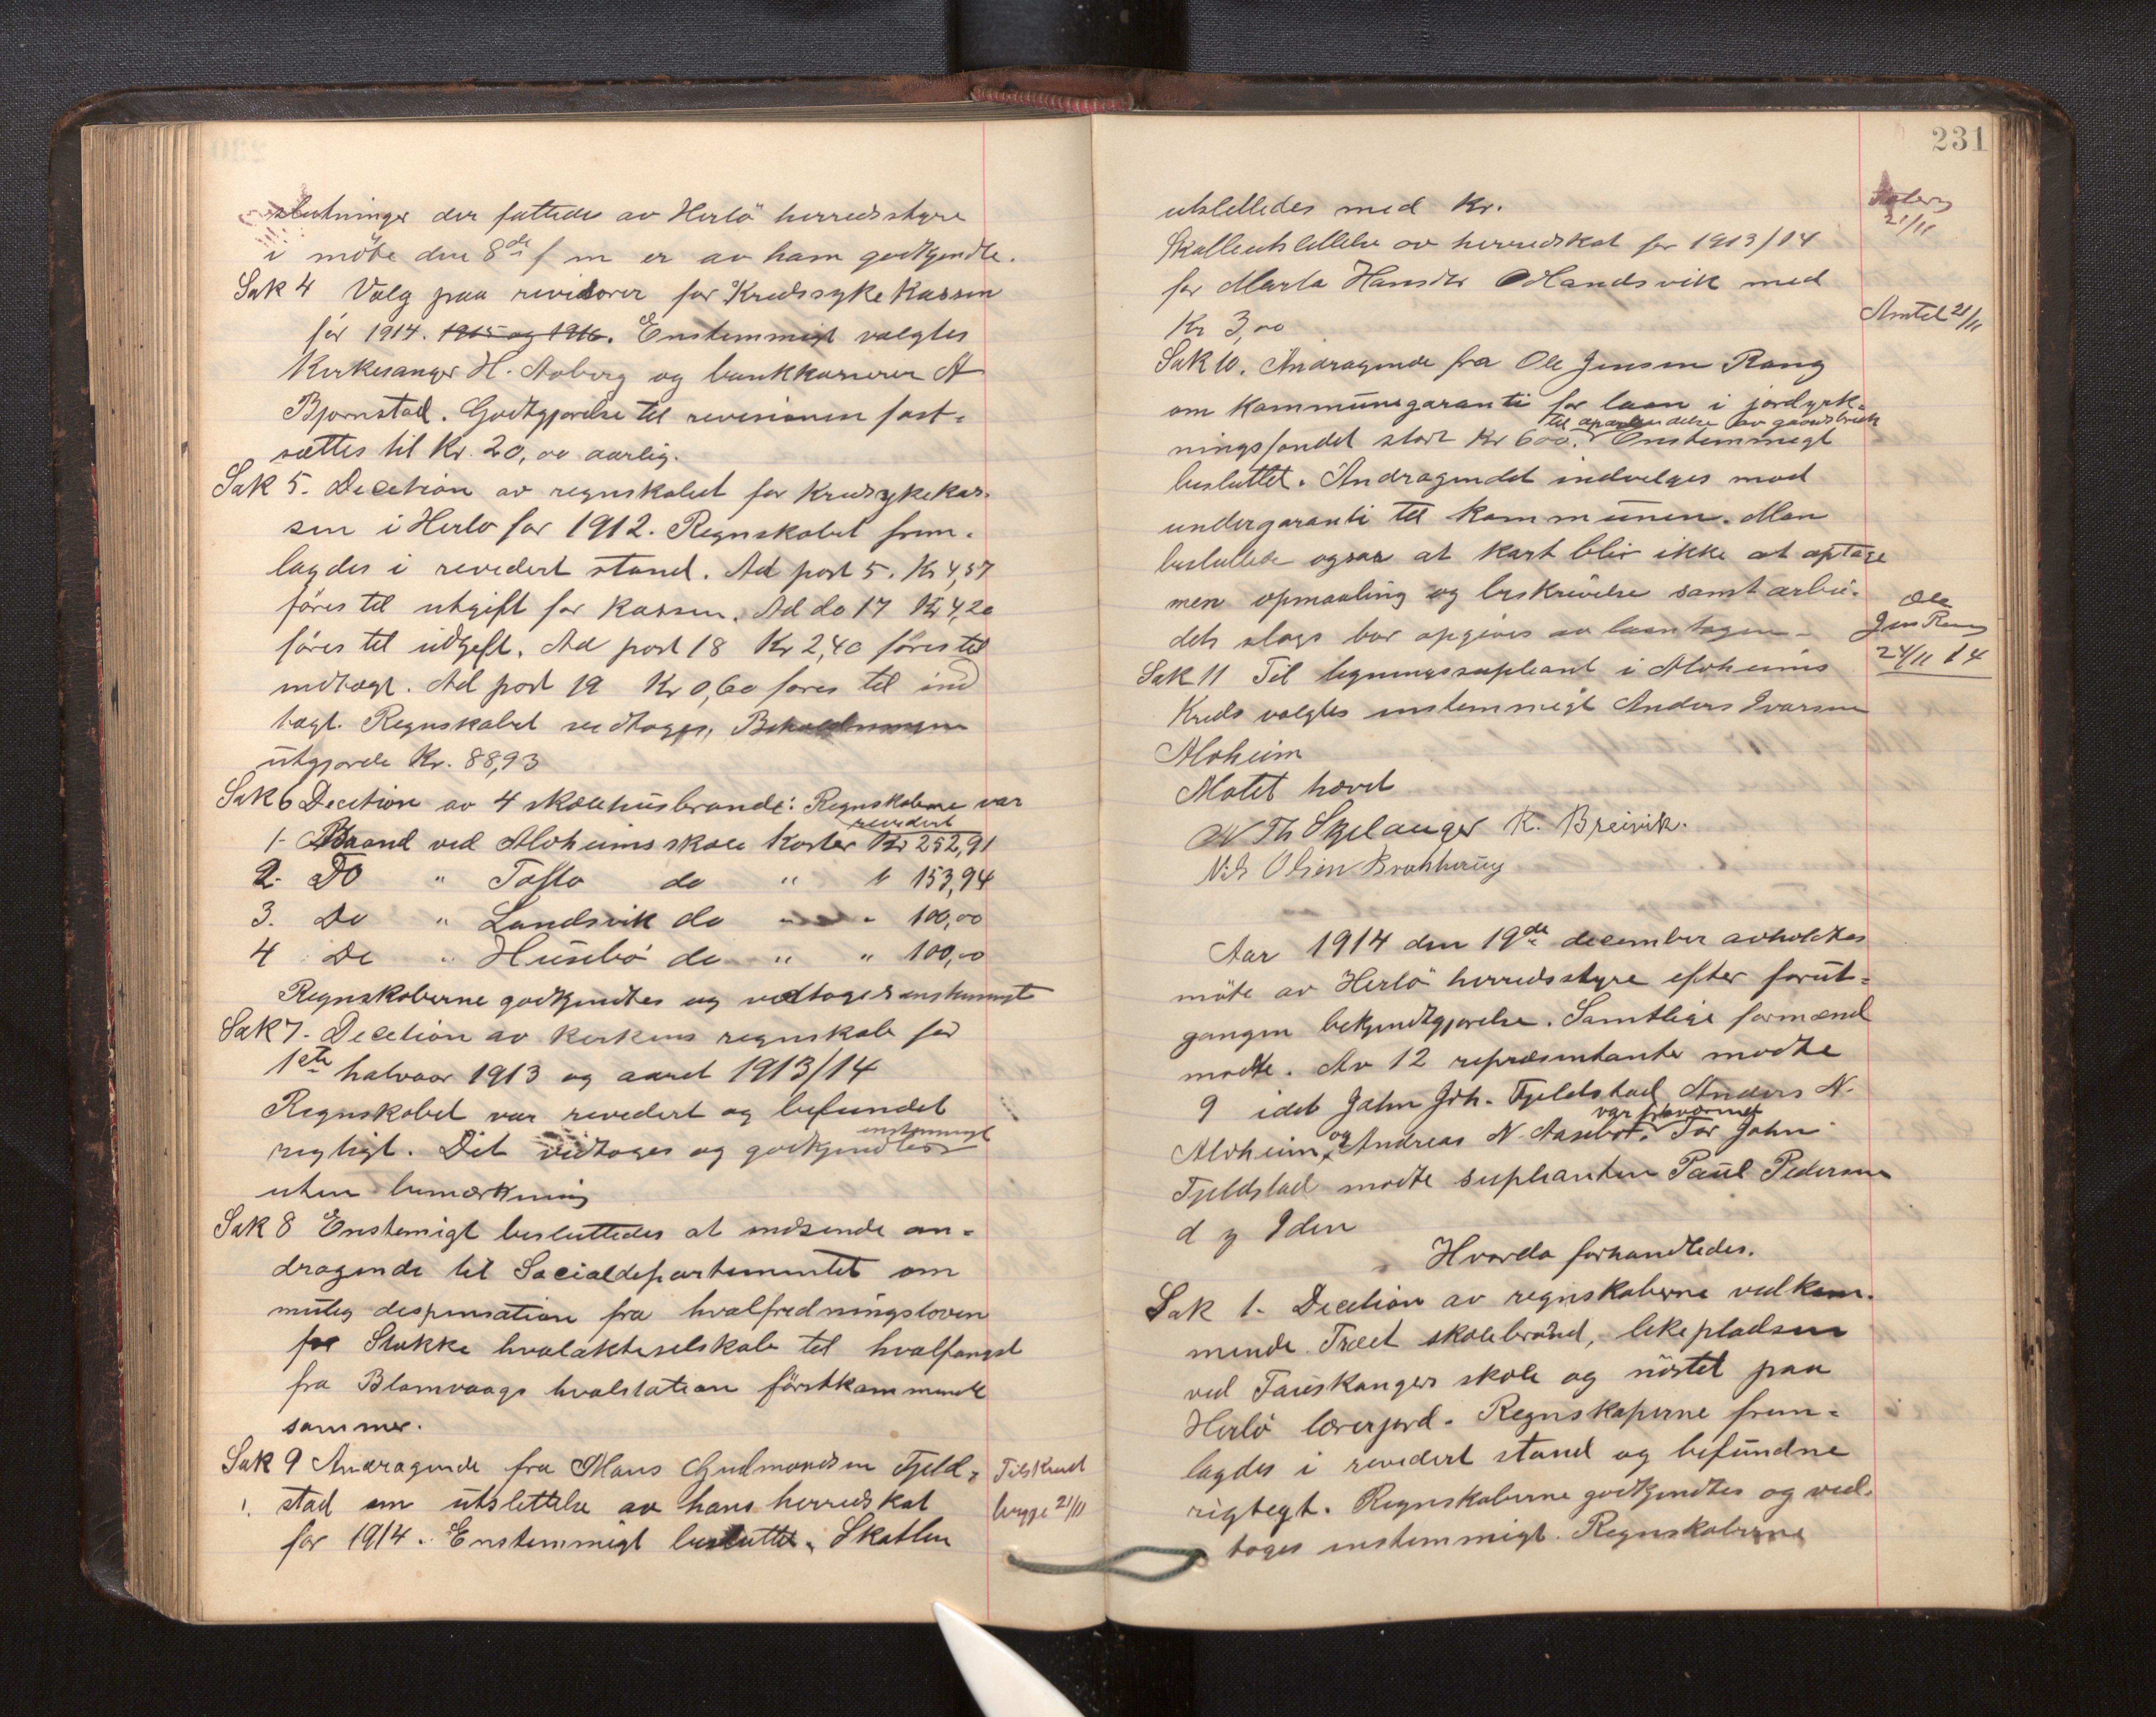 slutninger der fattedes av Herlö herredsstyre
i möte den 8de f m er av ham godkjendte.
Sak 4 Valg paa revisorer for Kredssykekassen
for 1914. 1915 og 1916. Enstemmigt valgtes
Kirkesanger H. Aaberg og bankkasserer A
Bjørnstad. Godtgjørelse til revisionen fast-
sættes til Kr. 20,00 aarlig.
Sak 5. Decition av regnskabet for Kredssykekas-
sen i Herlo for 1912. Regnskabet frem-
lagdes i revedert stand. Ad post 5. Kr 4,57
föres til utgift for kassen. Ad do 17 Kr 4,20
föres til udgift. Ad post 18 Kr 2,40 föres til
indtægt. Ad post 19 Kr 0,60 föres til ind
tægt. Regnskabet vedtoges. Beholdningen
utgjorde Kr. 88,93
Sak 6 Decition av 4 skolehusbrande: Regnskaberne var
revedert
1- Brand ved Alvheims skole koster Kr 252,91
2. Do " Tofto do " " 153,94
3. Do " Landsvik do " " 100,00
4 Do " Husebö do " " 100,00
Regnskaberne godkjendtes og vedtoges enstemmigt
Sak 7. Decition av kirkens regnskab for
1ste halvaar 1913 og aaret 1913/14
Regnskabet var revedert og befundet
enstemmigt
rigtigt. Det vedtoges og godkjendtes
uten bemærkning
Sak 8 Enstemigt besluttedes at indsende an-
dragende til Socialdepartementet om
mulig dispensation fra hvalfredningsloven
for Stokke hvalakteselskab til hvalfangst
fra Blomvaags hvalstation förstkommende
sommer.
Sak 9 Andragende fra Mons Gudmundsen Fjeld-
stad om utslettelse av hans herredskat
for 1914. Enstemmigt besluttet. Skatten
Tilskrevet
begge 21/11
231
utslettedes med Kr.
Skatteutslettelse av herredskat for 1913/14
for Marta Hansdtr Mandsvik med
Kr 3,00
21/11
Amtet 21/11
Sak 10. Andragende fra Ole Jensen Rong
om kommunegaranti for laan i jordyrk-
til oparbeidelse av gaardsbruk
ningsfondet stort Kr 600. Enstemmigt
besluttet. Andragendet indvelges mod
undergaranti til kommunen. Man
besluttede ogsaa at kart blir ikke at optage
men opmaaling og beskrivelse samt arbei-
dets slags bør opgives av laantagen-
Ole
Jens Rong
24/11 14
Sak 11 Til ligningssupleant i Alvheims
Kreds valgtes enstemmigt Anders Ivarsen
Alvheim
Møtet hævet
N Th Skjelanger K. Breivik.
Nils Olsen
Aar 1914 den 19de december avholdtes
möte av Herlö herredsstyre efter forut-
gangen bekjendtgjørelse. Samtlige formænd
mødte. Av 12 repræsentanter mødte
9 idet John Joh. Fjeldstad Anders N.
var fraværende
Alvheim, og Andreas N. Aasebø. For John
Fjeldstad mødte suplianten Paul Pedersen
d y Iden
Hvorda forhandledes.
Sak 1. Decition av regnskaberne vedkom-
mende Træet skolebrand, lekepladsen
ved Tauskangers skole og nöstet paa
Herlö lærerjord. Regnskaperne frem-
lagdes i revedert stand og befundne
rigtegt. Regnskaberne godkjendtes og ved-
toges enstemmigt. Regnskaberne